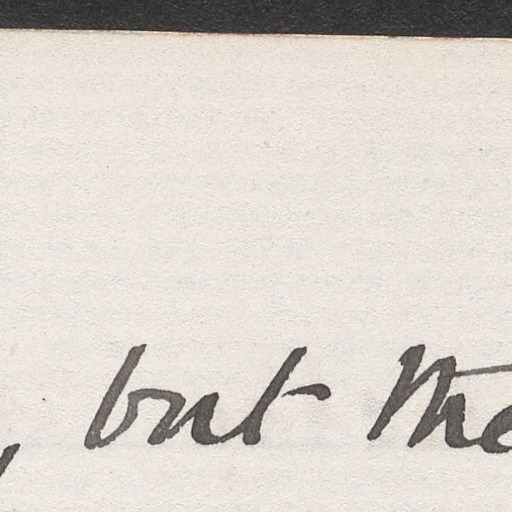 , but the